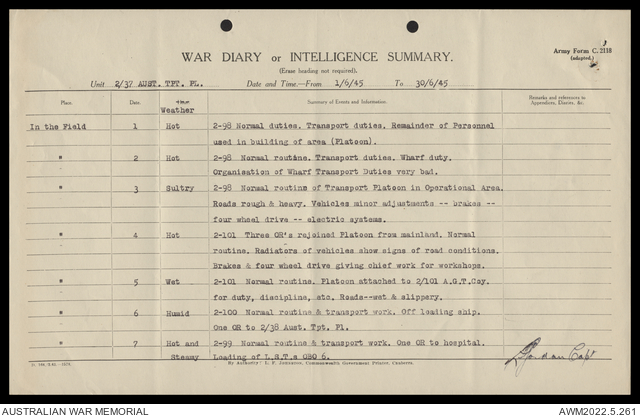 3
Army Form C. 2118
(adapted.)
WAR DIARY or INTELLIGENCE SUMMARY.
(Erase heading not required).
Unit 2/37 AUST. TPT. PL. Date and Time.—From 1/6/45 To 30/6/45
Place. Date. Weather Summary of Events and Information. Remarks and references to Appendices, Diaries, &c.
In the Field 1 Hot 2-98 Normal duties. Transport duties. Remainder of Personnel
used in building of area (Platoon).
" 2 Hot 2-98 Normal routine. Transport duties. Wharf duty.
Organisation of Wharf Transport Duties very bad.
" 3 Sultry 2-98 Normal routine of Transport Platoon in Operational Area.
Roads rough & heavy. Vehicles minor adjustments -- brakes --
four wheel drive -- electric systems.
" 4 Hot 2-101 Three OR's rejoined Platoon from mainland. Normal
routine. Radiators of vehicles show signs of road conditions.
Brakes & four wheel drive giving chief work for workshops.
" 5 Wet 2-101 Normal routine. Platoon attached to 2/101 A.G.T.Coy.
for duty, discipline, etc. Roads--wet & slippery.
" 6 Humid 2-100 Normal routine & transport work. Off loading ship.
One OR to 2/38 Aust. Tpt. Pl.
" 7 Hot and 2-99 Normal routine & transport work. One OR to hospital.
Steamy Loading of L.S.T.s OBO 6.
Jordan Capt
By Authority: L. F. Johnston, Commonwealth Government Printer, Canberra.
AUSTRALIAN WAR MEMORIAL AWM2022.5.261